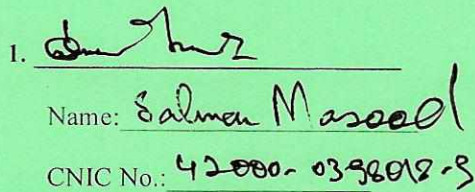 1.
Name: Salman Masood
CNIC No.: 42000-0398018-9